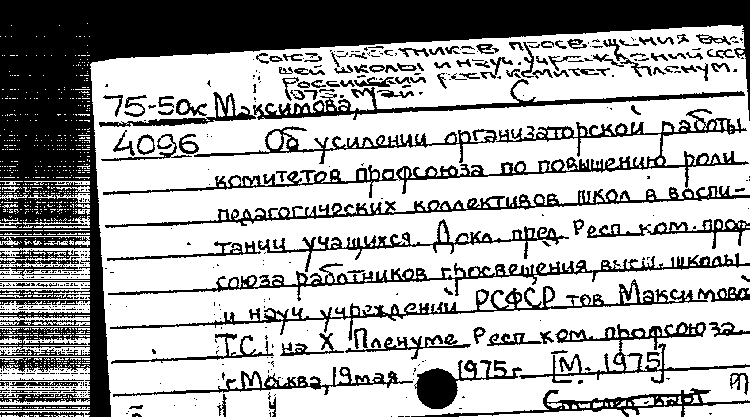 Союз работников просвещения выс-
шей школы и науч. учреждений СССР
Российский респ. комитет. Пленум.
1975. Май.
75-50к Максимова, С
4096 Об усилении организаторской работы
комитетов профсоюза по повышению роли
педагогических коллективов школ в воспи-
тании учащихся. Докл. пред. Респ. ком. проф-
союза работников просвещения, высш. школы
и науч. учреждений РСФСР тов Максимова
Т.С. на X Пленуме Респ ком. профсоюза.
г. Москва, 19 мая 1975 г. [М., 1975].
См след. карт.